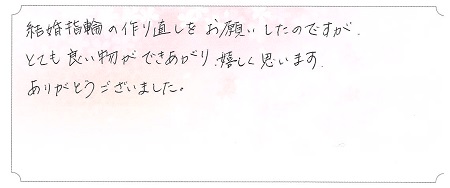 結婚指輪の作り直しをお願いしたのですが、
とても良い物ができあがり、嬉しく思います。
ありがとうございました。